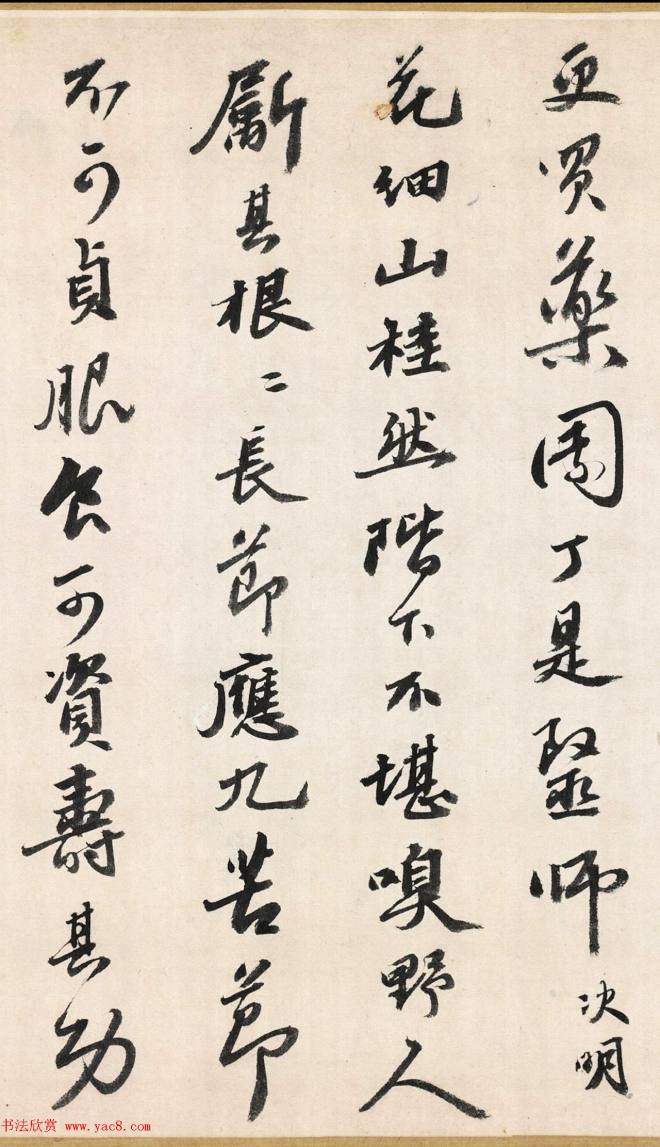 更買藥園丁是毉師決明
花細山桂然階下不堪嗅野人
劚其根〻長節應九苦節
不可貞服食可資壽其功
书法欣赏 www.yac8.com